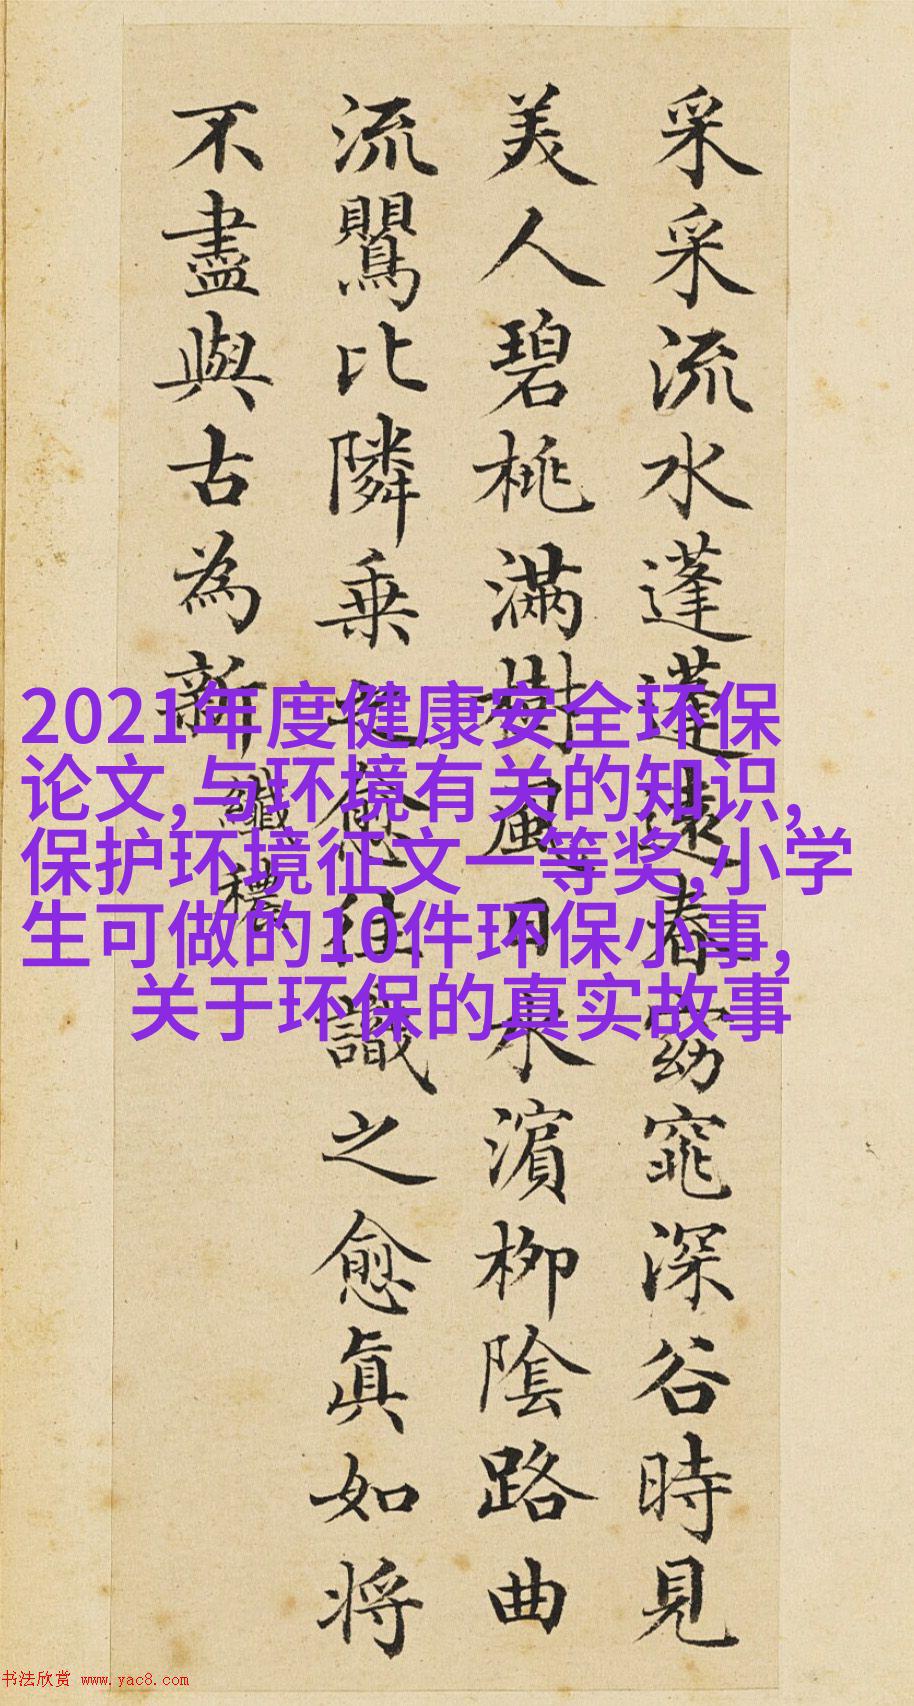 采采流水蓬蓬遠春窈窕深谷時見
美人碧桃滿樹風日水濱柳陰路曲
流鸎比隣乗之愈往識之愈眞如将
不盡與古為新
纖穠
2021年度健康安全环保
论文,与环境有关的知识,
保护环境征文一等奖,小学
生可做的10件环保小事,
关于环保的真实故事
书法欣赏 www.yac8.com